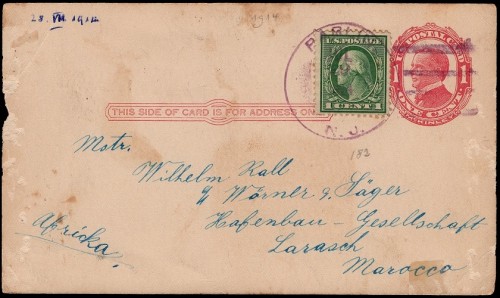 28. VII. 1914
1914
U.S. POSTAL CARD
1 1
ONE CENT
U.S. POSTAGE
1 CENT 1
N. J.
THIS SIDE OF CARD IS FOR ADDRESS ONLY
183
Mstr.
Wilhelm Rall
c/ Wörner & Jäger
Hafenbau - Gesellschaft
Larasch
Marocco
Africka